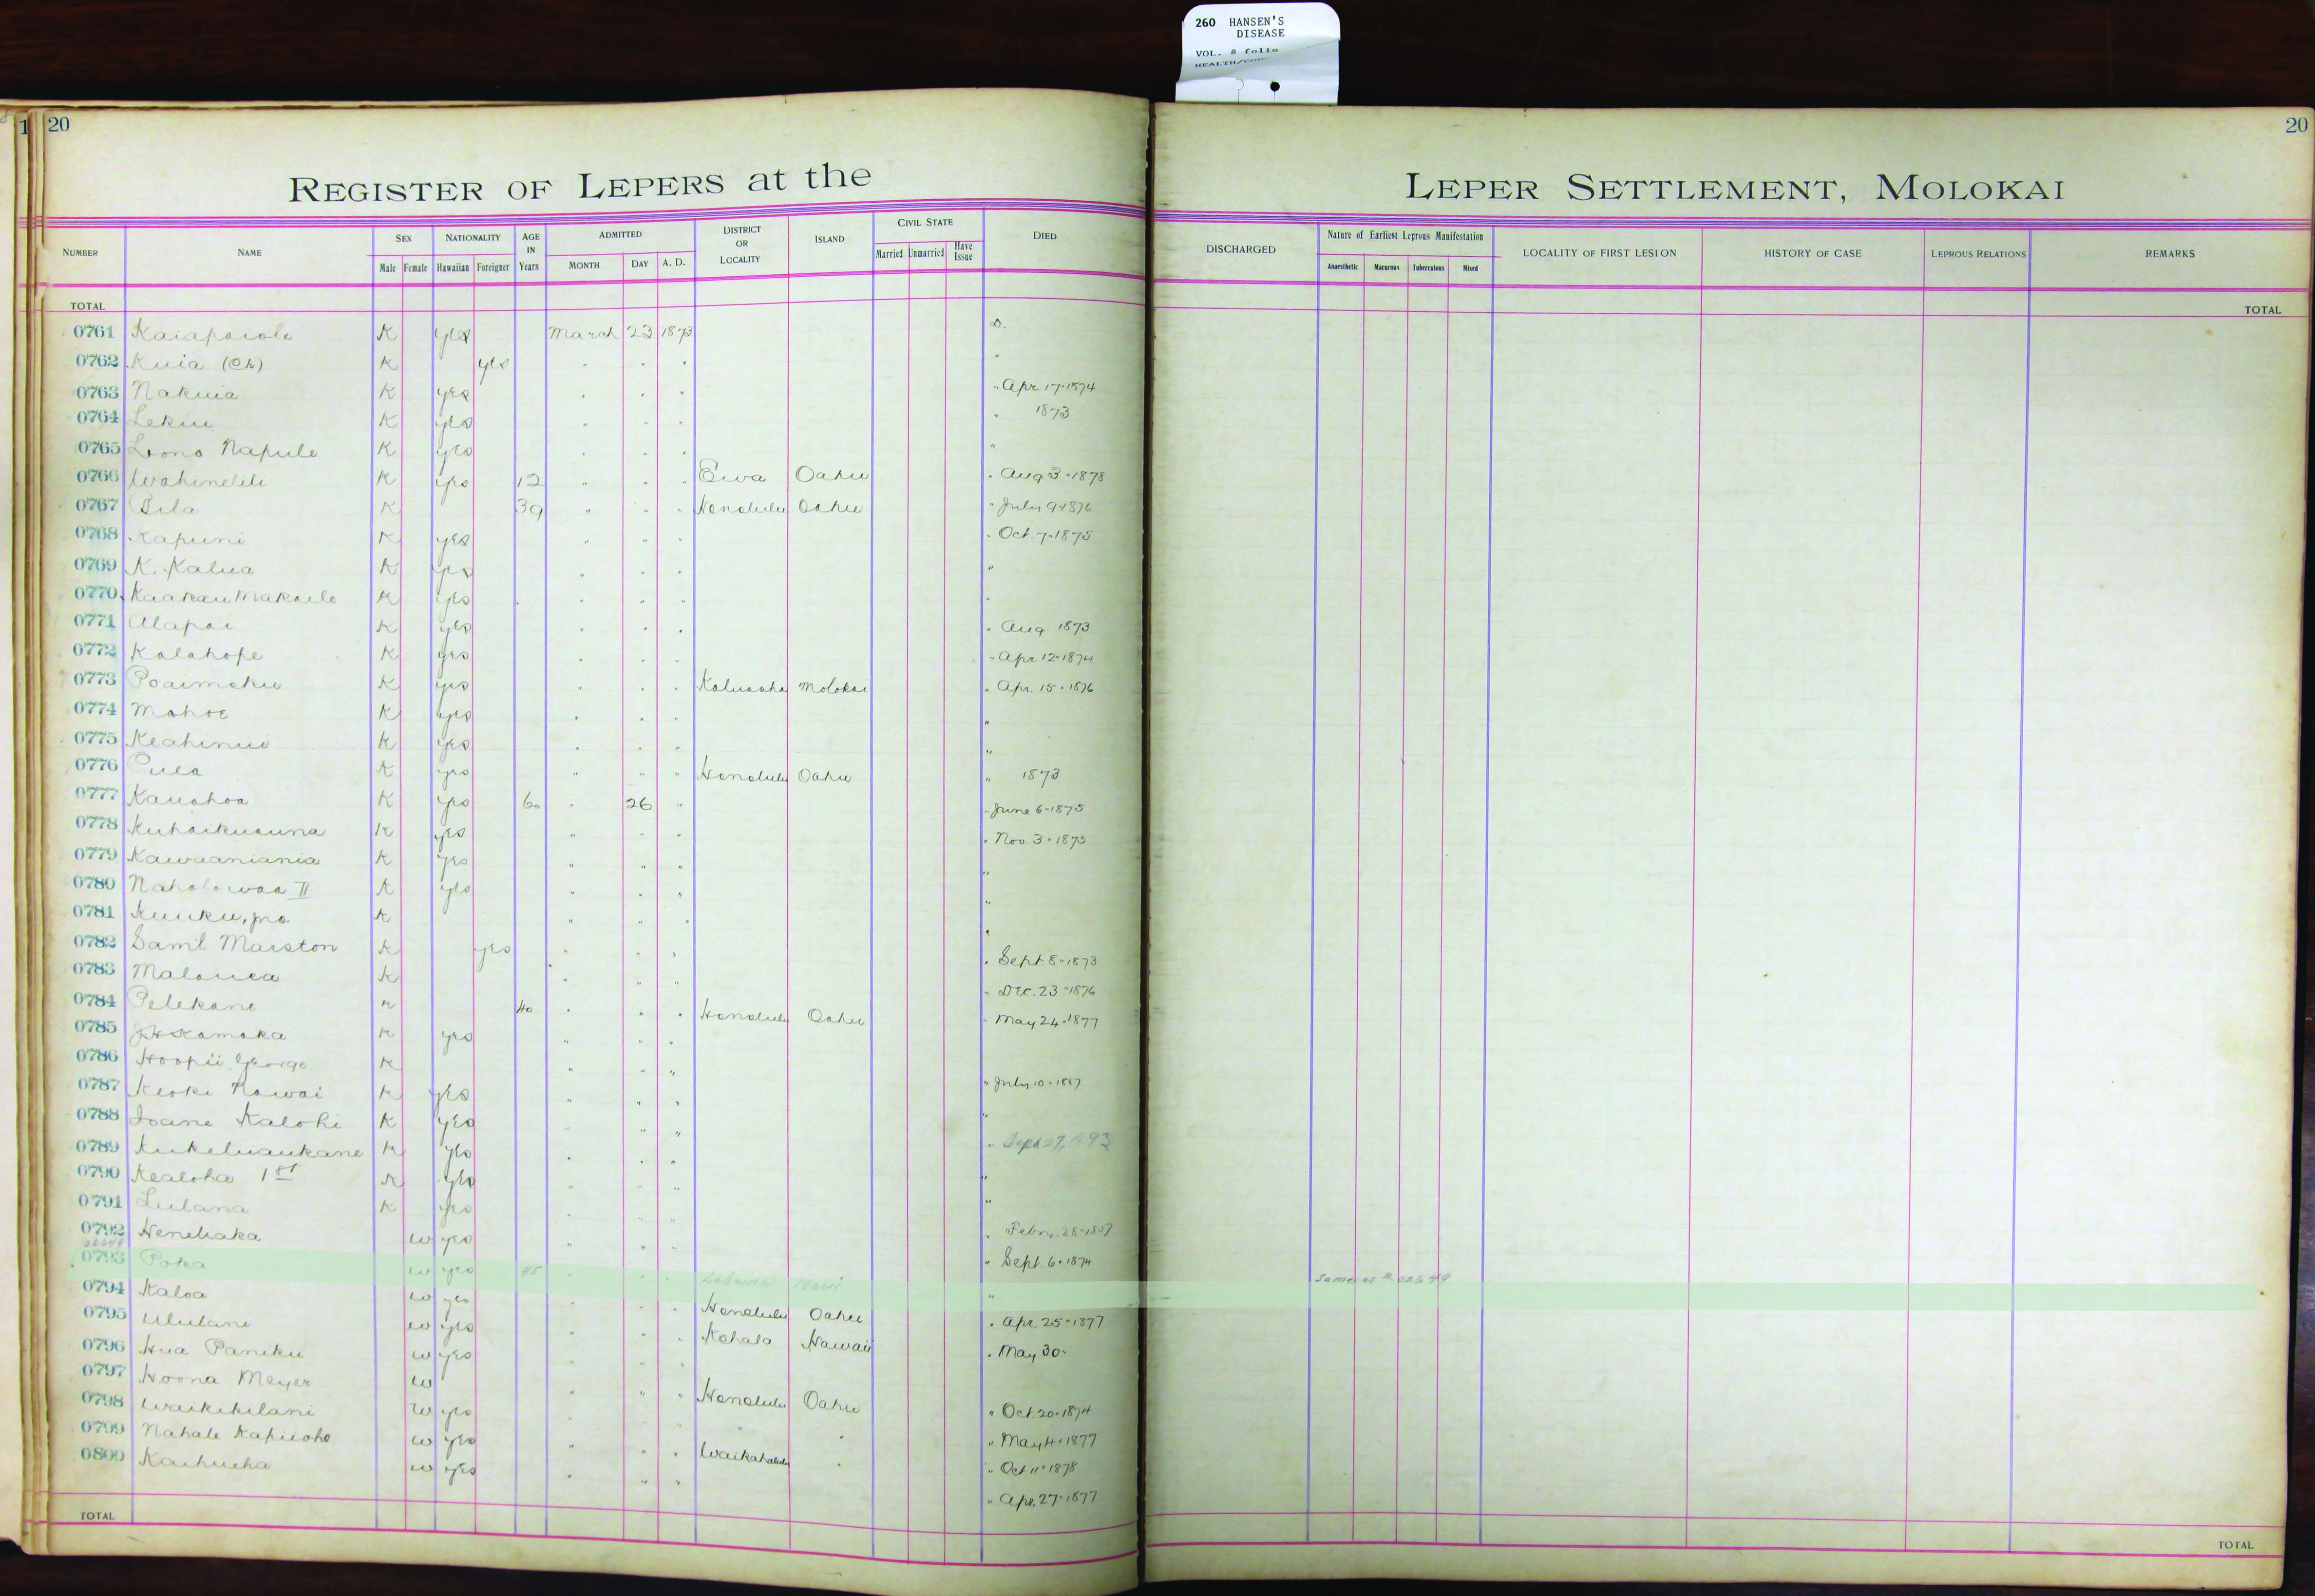 260 HANSEN'S
DISEASE
VOL. 8 folio
1 20
20
REGISTER OF LEPERS at the LEPER SETTLEMENT, MOLOKAI
NUMBER NAME SEX NATIONALITY AGE IN Years ADMITTED DISTRICT OR LOCALITY ISLAND CIVIL STATE DIED DISCHARGED Nature of Earliest Leprous Manifestation LOCALITY OF FIRST LESION HISTORY OF CASE LEPROUS RELATIONS REMARKS
Male Female Hawaiian Foreigner MONTH DAY A. D. Married Unmarried Have Issue Anaesthetic Macurous Tuberculous Mixed
TOTAL TOTAL
0761 Kaiapaiole K yes March 23 1873 D.
0762 Kuia (Ch) K yes
0763 Nakuia K yes " Apr 17-1874
0764 Lekiu K yes " 1873
0765 Lono Napule K yes "
0766 Wahinelili K yes 12 " " " Ewa Oahu " Aug 3-1878
0767 Pila K 39 " " " Honolulu Oahu " July 9-1876
0768 Kapuni K yes " " " " Oct. 7-1875
0769 K. Kalua K yes "
0770 Kaakau Makaele K yes "
0771 Alapai K yes " Aug 1873
0772 Kalahope K yes " Apr. 12-1874
0773 Poaimoku K yes Kaluaaha Molokai " Apr. 15-1876
0774 Mahoe K yes "
0775 Keahinui K yes "
0776 Pula K yes " " " Honolulu Oahu " 1873
0777 Kauahoa K yes 60 " 26 " " June 6-1875
0778 Kuhaikuauna K yes " " " " Nov. 3-1875
0779 Kawaaniania K yes " " " "
0780 Naholowaa II K yes " " " "
0781 Kuuku, jno. K " " " "
0782 Saml Marston K yes " " " " Sept 8-1873
0783 Malanea K " " " " Dec. 23-1876
0784 Pelekane K 40 " " " Honolulu Oahu " May 24-1877
0785 J H Kamaka K yes " " "
0786 Hoopii George K " " " " July 10-1887
0787 Keoki Nawai K yes " " " "
0788 Ioane Kalohi K yes " " " " Sept 27, 1893
0789 Kukeluaukane K yes " " " "
0790 Kealoha 1st K yes " " " "
0791 Lulana K yes " " " " Febry. 28-1887
0792 Henehaka w yes " " " " Sept. 6-1874
02649
0793 Poka w yes 45 " " " Lahaina Maui " Same as # 02649
0794 Kaloa w yes " " " Honolulu Oahu " Apr. 25-1877
0795 Ululani w yes " " " Kohala Hawaii " May 30-
0796 Hua Paniku w yes " " "
0797 Hoona Meyer w " " " Honolulu Oahu " Oct. 20-1874
0798 Waikikilani w yes " " " " " May 4-1877
0799 Nahale Kapiioho w yes " " " Waikahalulu " " Oct 11-1878
0800 Kaihueha w yes " " " " Apr. 27-1877
TOTAL TOTAL